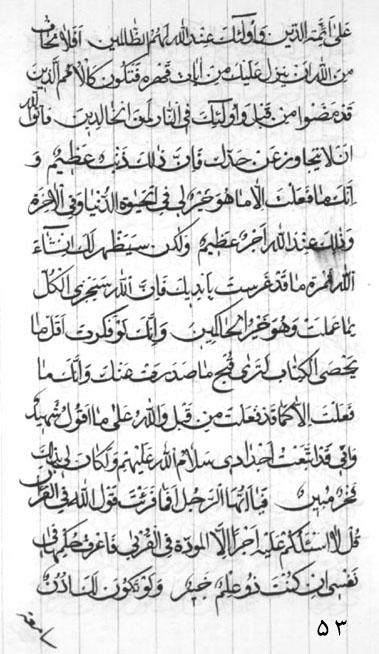 على ائمة الدين واولئك عند الله لهم الظالمين افلا تخاف
من الله ان ينزل عليك من ايات قهره فتكون كالامم الذين
قد مضوا من قبل واولئك في النار لمن الخالدين فاتق الله
ان لا يتجاوز عن حدك فان ذلك ذنب عظيم و
انك ما فعلت الا ما هو خير لي في الحيوة الدنيا وفي الاخرة
وذلك عند الله اجر عظيم ولكن سيظهر لك انشاء
الله ثمرة ما قد غرست بايديك فان الله سيجزى الكل
بما عملت وهو خير الحاكمين وانك لو فكرت اقل ما
يحصى الكتاب لترى قبح ما صدرت عنك وانك ما
فعلت الا كما قد فعلت من قبل والله على ما اقول شهيد
واني قد اتبعت اجدادى سلام الله عليهم وكان لي بذلك
فخر مبين فيا ايها الرجل اما قرئت قول الله في القرآن
قل لا اسئلكم عليه اجرا الا المودة في القربى فاعرف حكمها في
نفسي ان كنت ذو علم خبير ولو تكون لمن اذن
۵۳